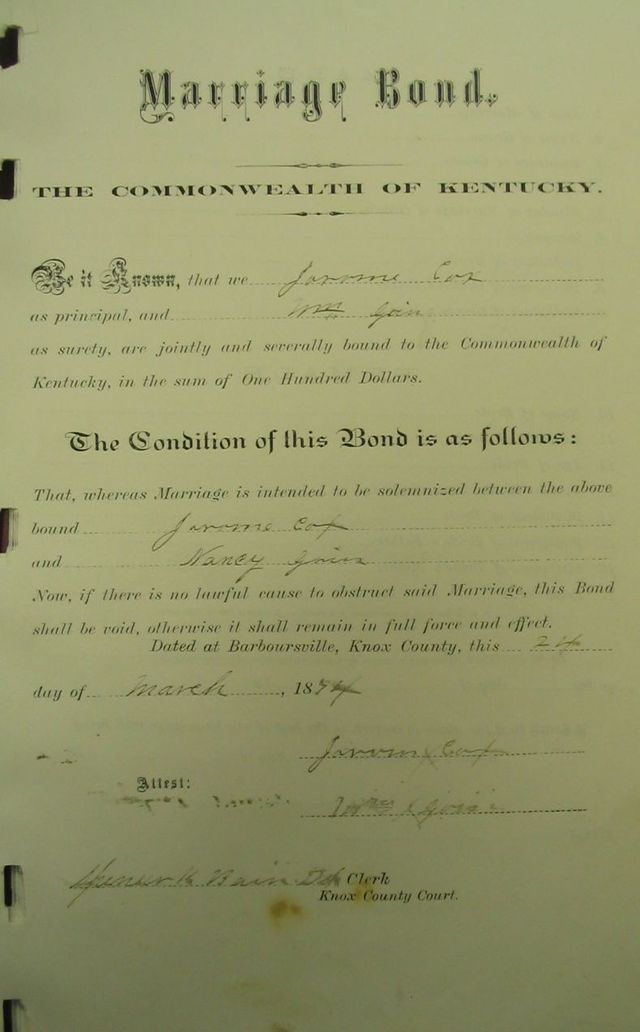 Marriage Bond.
THE COMMONWEALTH OF KENTUCKY.
Be it Known, that we Jarome Cox
as principal, and Wm Goin
as surety, are jointly and severally bound to the Commonwealth of
Kentucky, in the sum of One Hundred Dollars.
The Condition of this Bond is as follows:
That, whereas Marriage is intended to be solemnized between the above
bound Jarome Cox
and Nancy Goin
Now, if there is no lawful cause to obstruct said Marriage, this Bond
shall be void, otherwise it shall remain in full force and effect.
Dated at Barboursville, Knox County, this 24
day of March, 18
Jarom Cox
Attest:
Wm Goin
Clerk
Knox County Court.